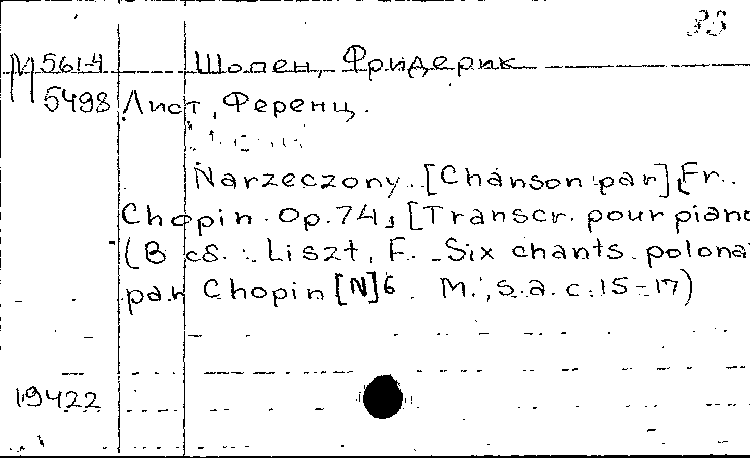 35
М 5614 Шопен, Фридерик
5498 Лист, Ференц.
Narzeczony. [Chanson par] Fr.
Chopin. Op. 74, [Transcr. pour piano
(В сб.: Liszt, F. Six chants polona
par Chopin [N] 6. M., s.a. c. 15-17)
19422